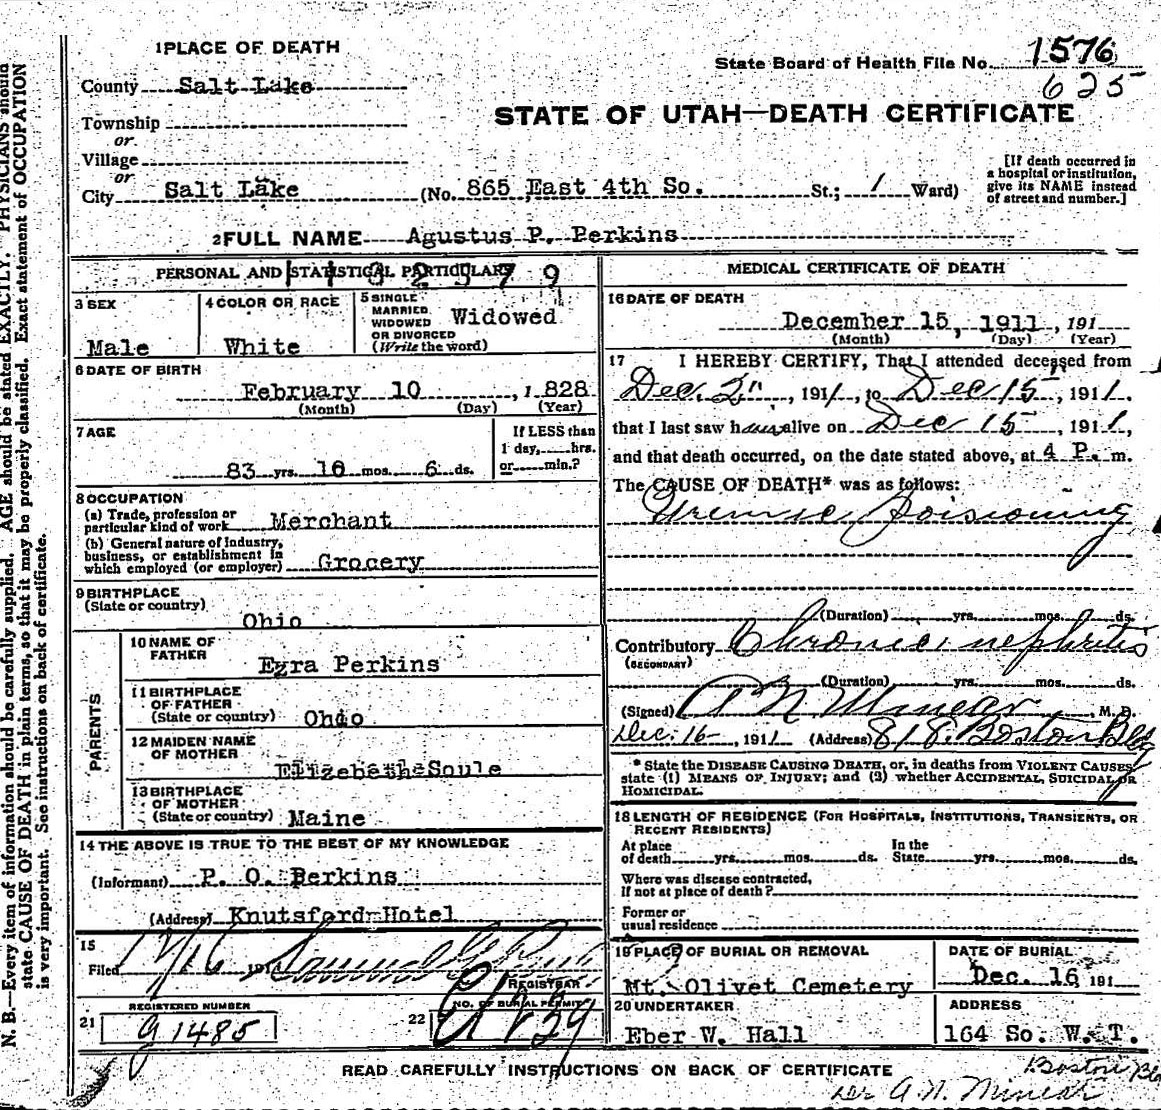 1 PLACE OF DEATH
State Board of Health File No. 1576
625
County Salt Lake
STATE OF UTAH—DEATH CERTIFICATE
Township
or
Village
or
City Salt Lake (No. 865 East 4th So. St.; 1 Ward)
[If death occurred in
a hospital or institution,
give its NAME instead
of street and number.]
2 FULL NAME Agustus P. Perkins
PERSONAL AND STATISTICAL PARTICULARS
3 SEX
Male
4 COLOR OR RACE
White
5 SINGLE
MARRIED
WIDOWED
OR DIVORCED
(Write the word)
Widowed
6 DATE OF BIRTH
February 10, 1828
(Month) (Day) (Year)
7 AGE
83 yrs. 10 mos. 6 ds.
If LESS than
1 day, hrs.
or min.?
8 OCCUPATION
(a) Trade, profession or
particular kind of work Merchant
(b) General nature of industry,
business, or establishment in
which employed (or employer) Grocery
9 BIRTHPLACE
(State or country)
Ohio
PARENTS
10 NAME OF
FATHER
Ezra Perkins
11 BIRTHPLACE
OF FATHER
(State or country) Ohio
12 MAIDEN NAME
OF MOTHER
Elizebeth Soule
13 BIRTHPLACE
OF MOTHER
(State or country) Maine
14 THE ABOVE IS TRUE TO THE BEST OF MY KNOWLEDGE
(Informant) P. O. Perkins
(Address) Knutsford Hotel
15
Filed 191
REGISTRAR
REGISTERED NUMBER
21 1485
NO. OF BURIAL PERMIT
22
MEDICAL CERTIFICATE OF DEATH
16 DATE OF DEATH
December 15, 1911, 191
(Month) (Day) (Year)
17 I HEREBY CERTIFY, That I attended deceased from
Dec. 2", 1911, to Dec 15, 1911.
that I last saw him alive on Dec 15, 1911,
and that death occurred, on the date stated above, at 4 P. m.
The CAUSE OF DEATH* was as follows:
Uremic Poisioning
(Duration) yrs. mos. ds.
Contributory Chronic nephritis
(SECONDARY)
(Duration) yrs. mos. ds.
(Signed) A N Minear, M. D.
Dec. 16, 1911 (Address) 818 Boston Bldg
* State the DISEASE CAUSING DEATH, or, in deaths from VIOLENT CAUSES,
state (1) MEANS OF INJURY; and (2) whether ACCIDENTAL, SUICIDAL or
HOMICIDAL.
18 LENGTH OF RESIDENCE (FOR HOSPITALS, INSTITUTIONS, TRANSIENTS, OR
RECENT RESIDENTS)
At place
of death yrs. mos. ds.
In the
State yrs. mos. ds.
Where was disease contracted,
if not at place of death?
Former or
usual residence
19 PLACE OF BURIAL OR REMOVAL
Mt. Olivet Cemetery
DATE OF BURIAL
Dec. 16 191
20 UNDERTAKER
Eber W. Hall
ADDRESS
164 So. W. T.
READ CAREFULLY INSTRUCTIONS ON BACK OF CERTIFICATE
Boston Bld
Dr A. N. Minear
N. B.—Every item of information should be carefully supplied. AGE should be stated EXACTLY. PHYSICIANS should
state CAUSE OF DEATH in plain terms, so that it may be properly classified. Exact statement of OCCUPATION
is very important. See instructions on back of certificate.